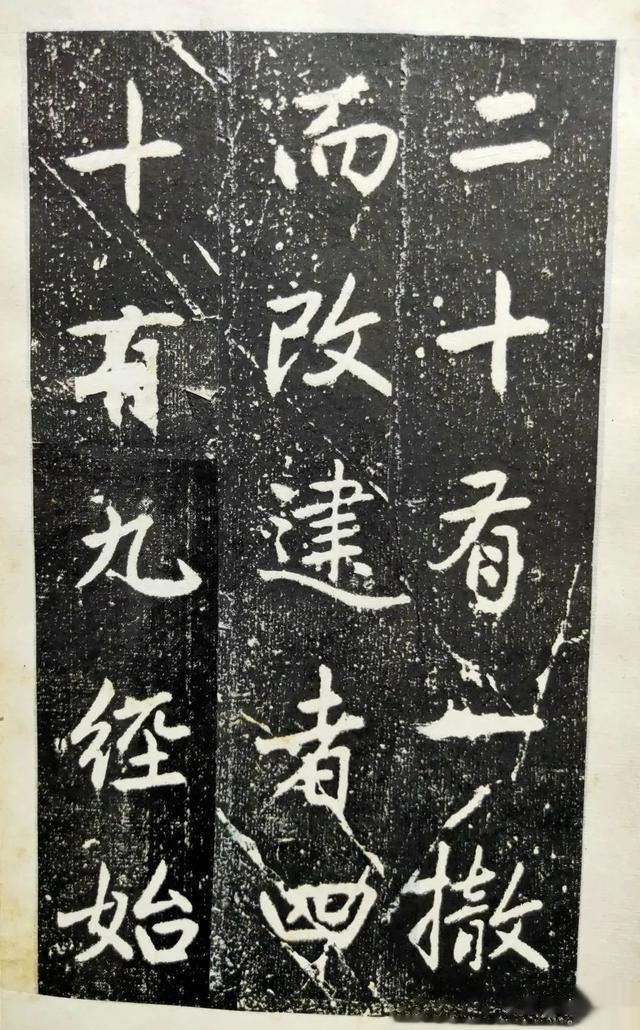 二十有一撤
而改建者四
十有九經始